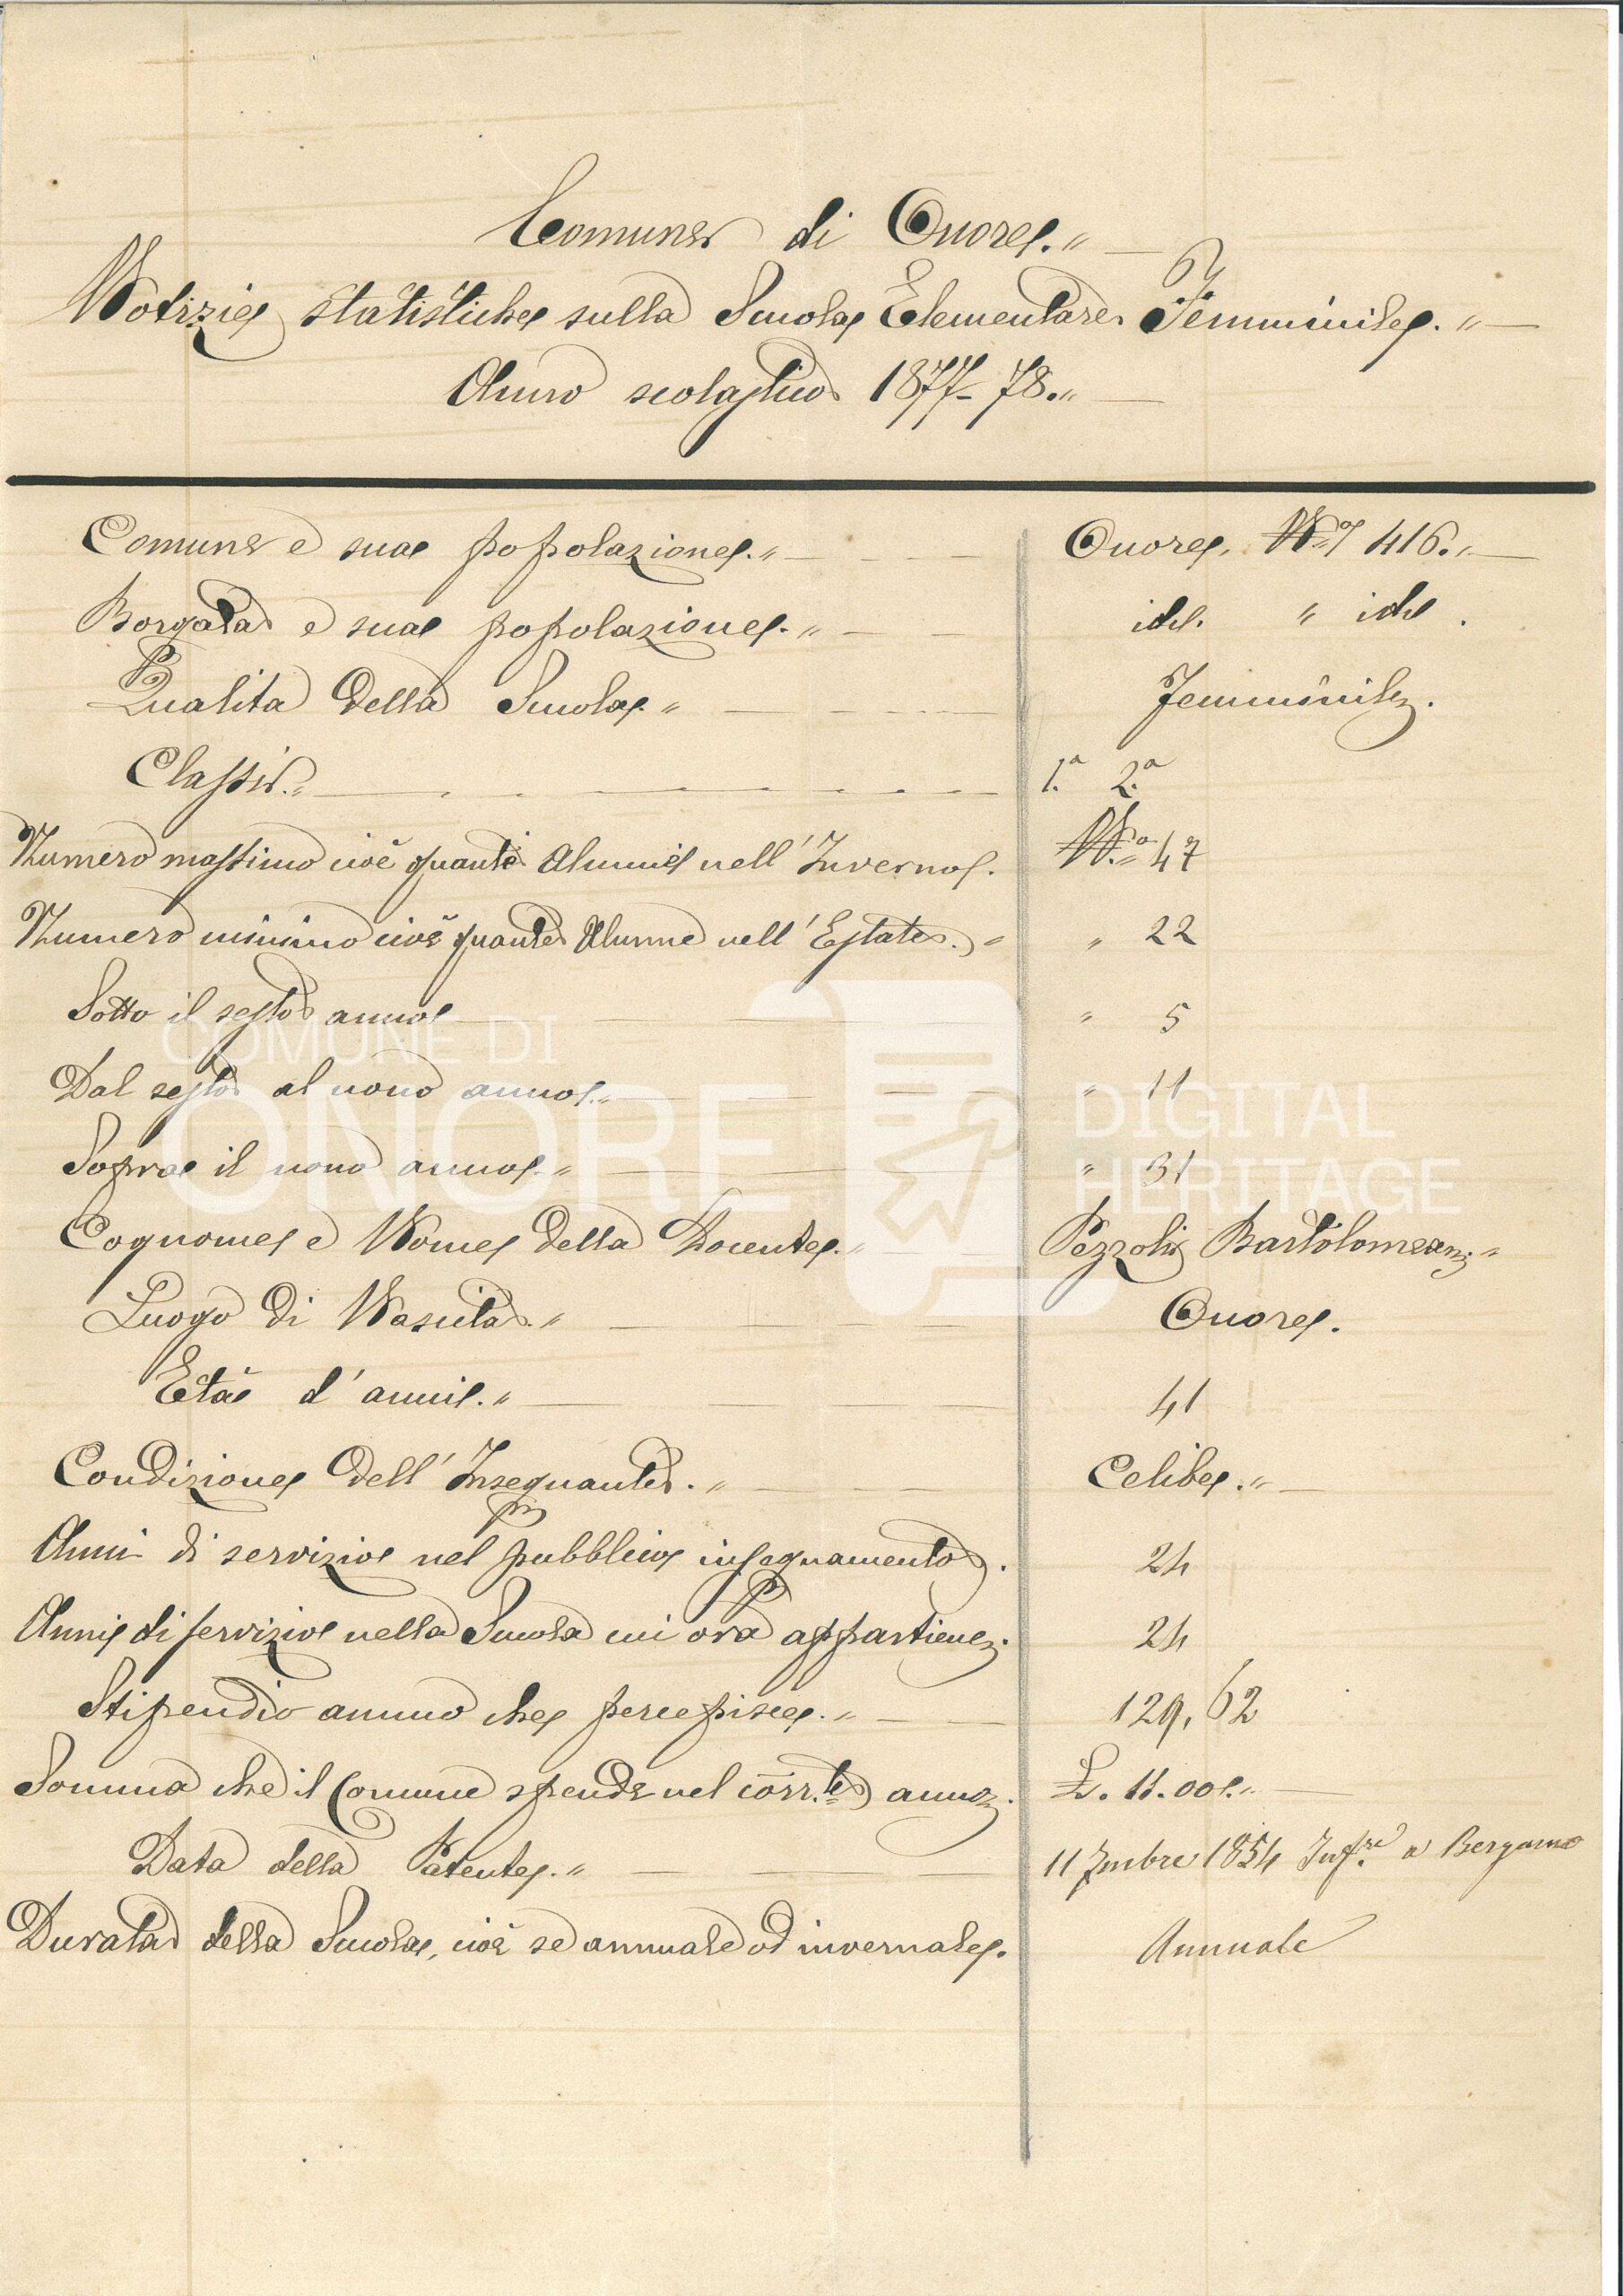 Comune di Onore.„
Notizie statistiche sulla Scuola Elementare Femminile.„
Anno scolastico 1877-78.„
Comune e sua popolazione.„ Onore. N.º 416.„
Borgata e sua popolazione.„ id. „ id.
Qualità della Scuola.„ Femminile.
Classi.„ 1.ª 2.ª
Numero massimo cioè quante Alunne nell'Inverno. N.º 47
Numero minimo cioè quante Alunne nell'Estate.„ „ 22
Sotto il sesto anno „ 5
Dal sesto al nono anno.„ „ 11
Sopra il nono anno.„ „ 31
Cognome e Nome della Docente.„ Pezzoli Bartolomea.„
Luogo di Nascita.„ Onore.
Età d'anni.„ 41
Condizione dell'Insegnante.„ Celibe.„
Anni di servizio nel pubblico insegnamento. 24
Anni di servizio nella Scuola cui ora appartiene. 24
Stipendio annuo che percepisce.„ 129,62
Somma che il Comune spende nel corr.te anno. £. 11.00.„
Data della Patente.„ 11 7mbre 1854 Inf.re a Bergamo
Durata della Scuola, cioè se annuale od invernale. Annuale
COMUNE DI
ONORE
DIGITAL
HERITAGE